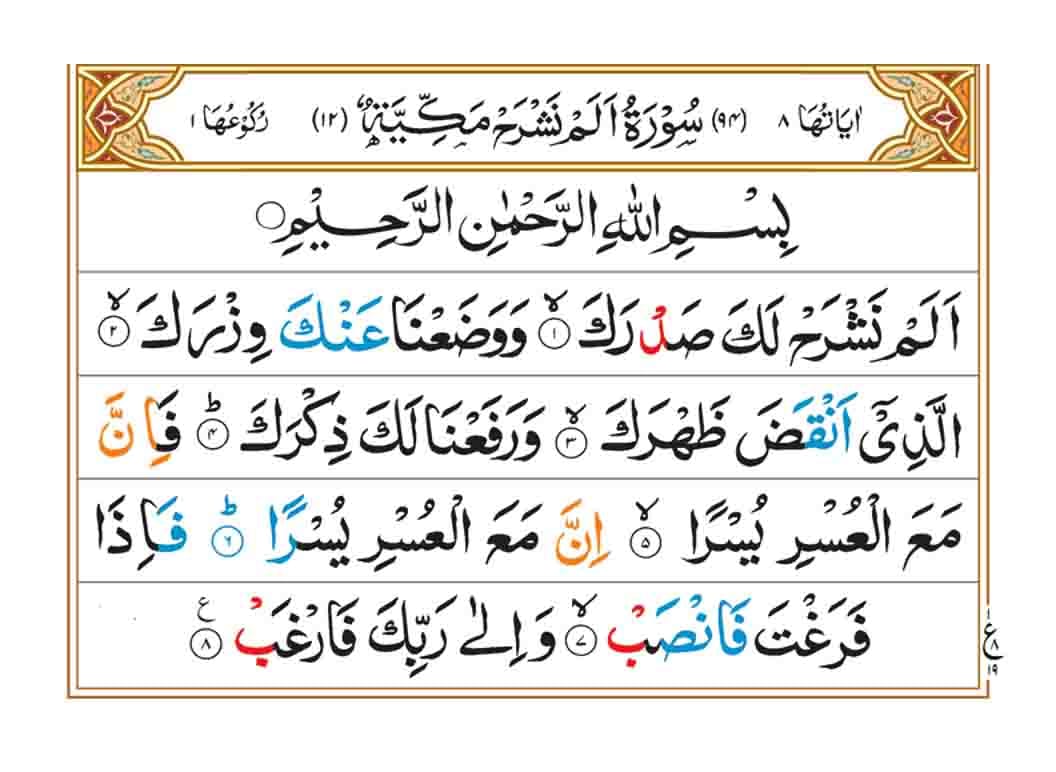 اٰيَاتُهَا ٨ (٩٤) سُوْرَةُ اَلَمْ نَشْرَحْ مَكِّيَّةٌ (١٢) رُكُوْعُهَا ١
بِسْمِ اللّٰهِ الرَّحْمٰنِ الرَّحِيْمِ ○
اَلَمْ نَشْرَحْ لَكَ صَدْرَكَ ۙ‏﴿١﴾ وَوَضَعْنَا عَنْكَ وِزْرَكَ ۙ‏﴿٢﴾
الَّذِيْۤ اَنْقَضَ ظَهْرَكَ ۙ‏﴿٣﴾ وَرَفَعْنَا لَكَ ذِكْرَكَ ؕ‏﴿٤﴾ فَاِنَّ
مَعَ الْعُسْرِ يُسْرًا ۙ‏﴿٥﴾ اِنَّ مَعَ الْعُسْرِ يُسْرًا ؕ‏﴿٦﴾ فَاِذَا
فَرَغْتَ فَانْصَبْ ۙ‏﴿٧﴾ وَاِلٰى رَبِّكَ فَارْغَبْ ﴿٨﴾ ع
١
ع
٨
١٩